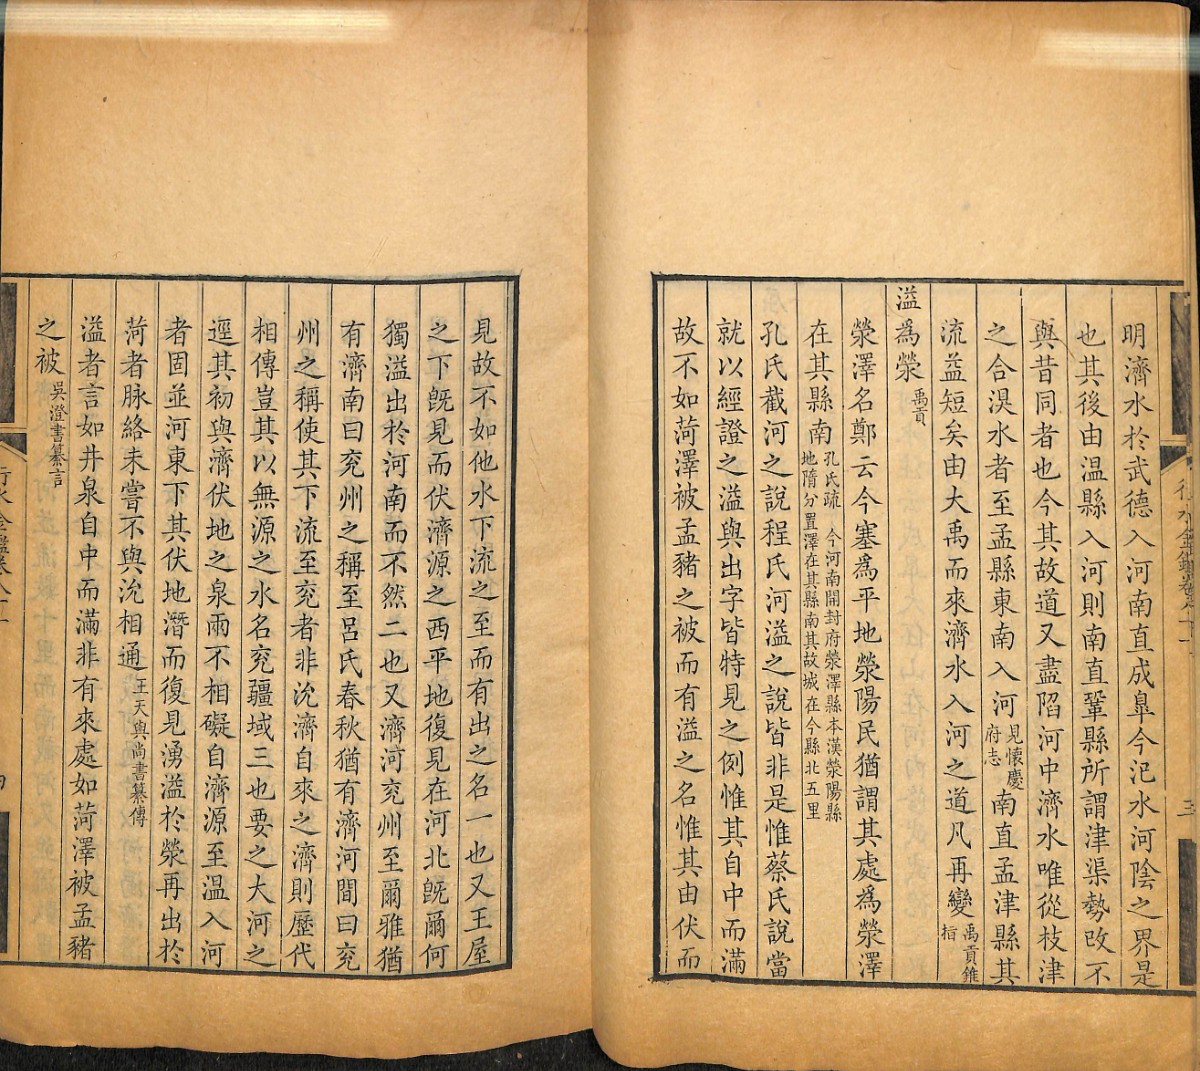 明濟水於武德入河南直成臯今汜水河陰之界是
也其後由温縣入河則南直鞏縣所謂津渠勢改不
與昔同者也今其故道又盡陷河中濟水唯從枝津
之合湨水者至孟縣東南入河見懷慶府志南直孟津縣其
流益短矣由大禹而來濟水入河之道凡再變禹貢錐指
溢為滎禹貢
滎澤名鄭云今塞為平地滎陽民猶謂其處為滎澤
在其縣南孔氏疏 今河南開封府滎澤縣本漢滎陽縣地隋分置澤在其縣南其故城在今縣北五里
孔氏截河之說程氏河溢之說皆非是惟蔡氏說當
就以經證之溢與出字皆特見之例惟其自中而滿
故不如菏澤被孟豬之被而有溢之名惟其由伏而
行水金鑑卷八十一
三
見故不如他水下流之至而有出之名一也又王屋
之下旣見而伏濟源之西平地復見在河北旣爾何
獨溢出於河南而不然二也又濟河兖州至爾雅猶
有濟南曰兖州之稱至呂氏春秋猶有濟河間曰兖
州之稱使其下流至兖者非沇濟自來之濟則歷代
相傳豈其以無源之水名兖疆域三也要之大河之
逕其初與濟伏地之泉兩不相礙自濟源至温入河
者固並河東下其伏地潛而復見湧溢於滎再出於
菏者脉絡未嘗不與沇相通王天與尚書纂傳
溢者言如井泉自中而滿非有來處如菏澤被孟豬
之被吳澄書纂言
行水金鑑卷八十一
四